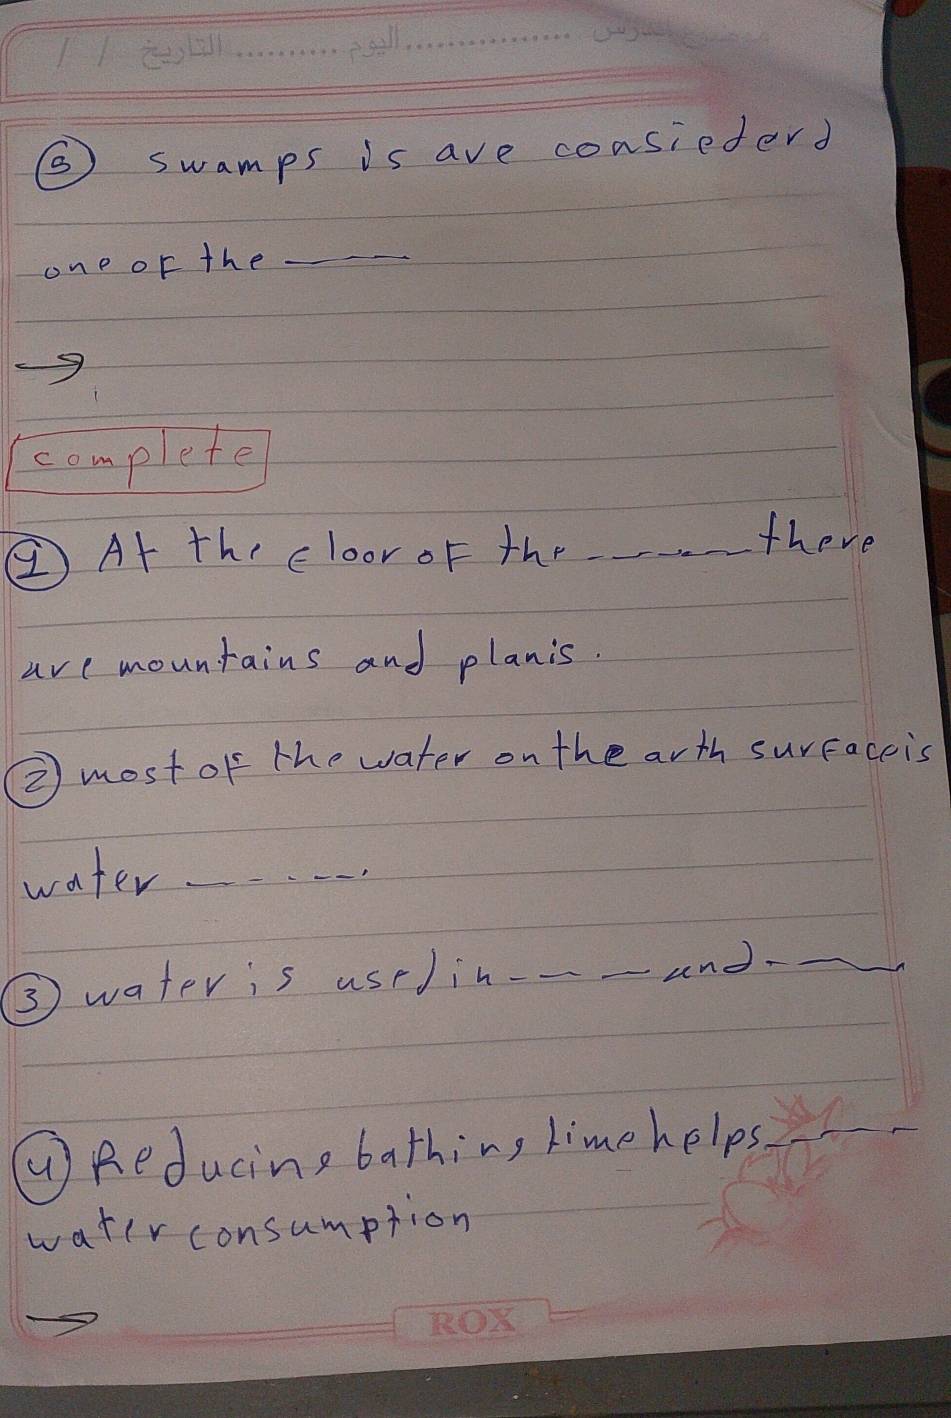 موضوع الدرس ................ اليوم ........... التاريخ / /
⑤ swamps is are consiederd
one of the ———
→
complete
① At the floor of the ------ there
are mountains and planis.
② most of the water on the arth surfaceis
water ------.
③ water is used in ---- and ----
④ Reducing bathing time helps ----
water consumption
→
ROX